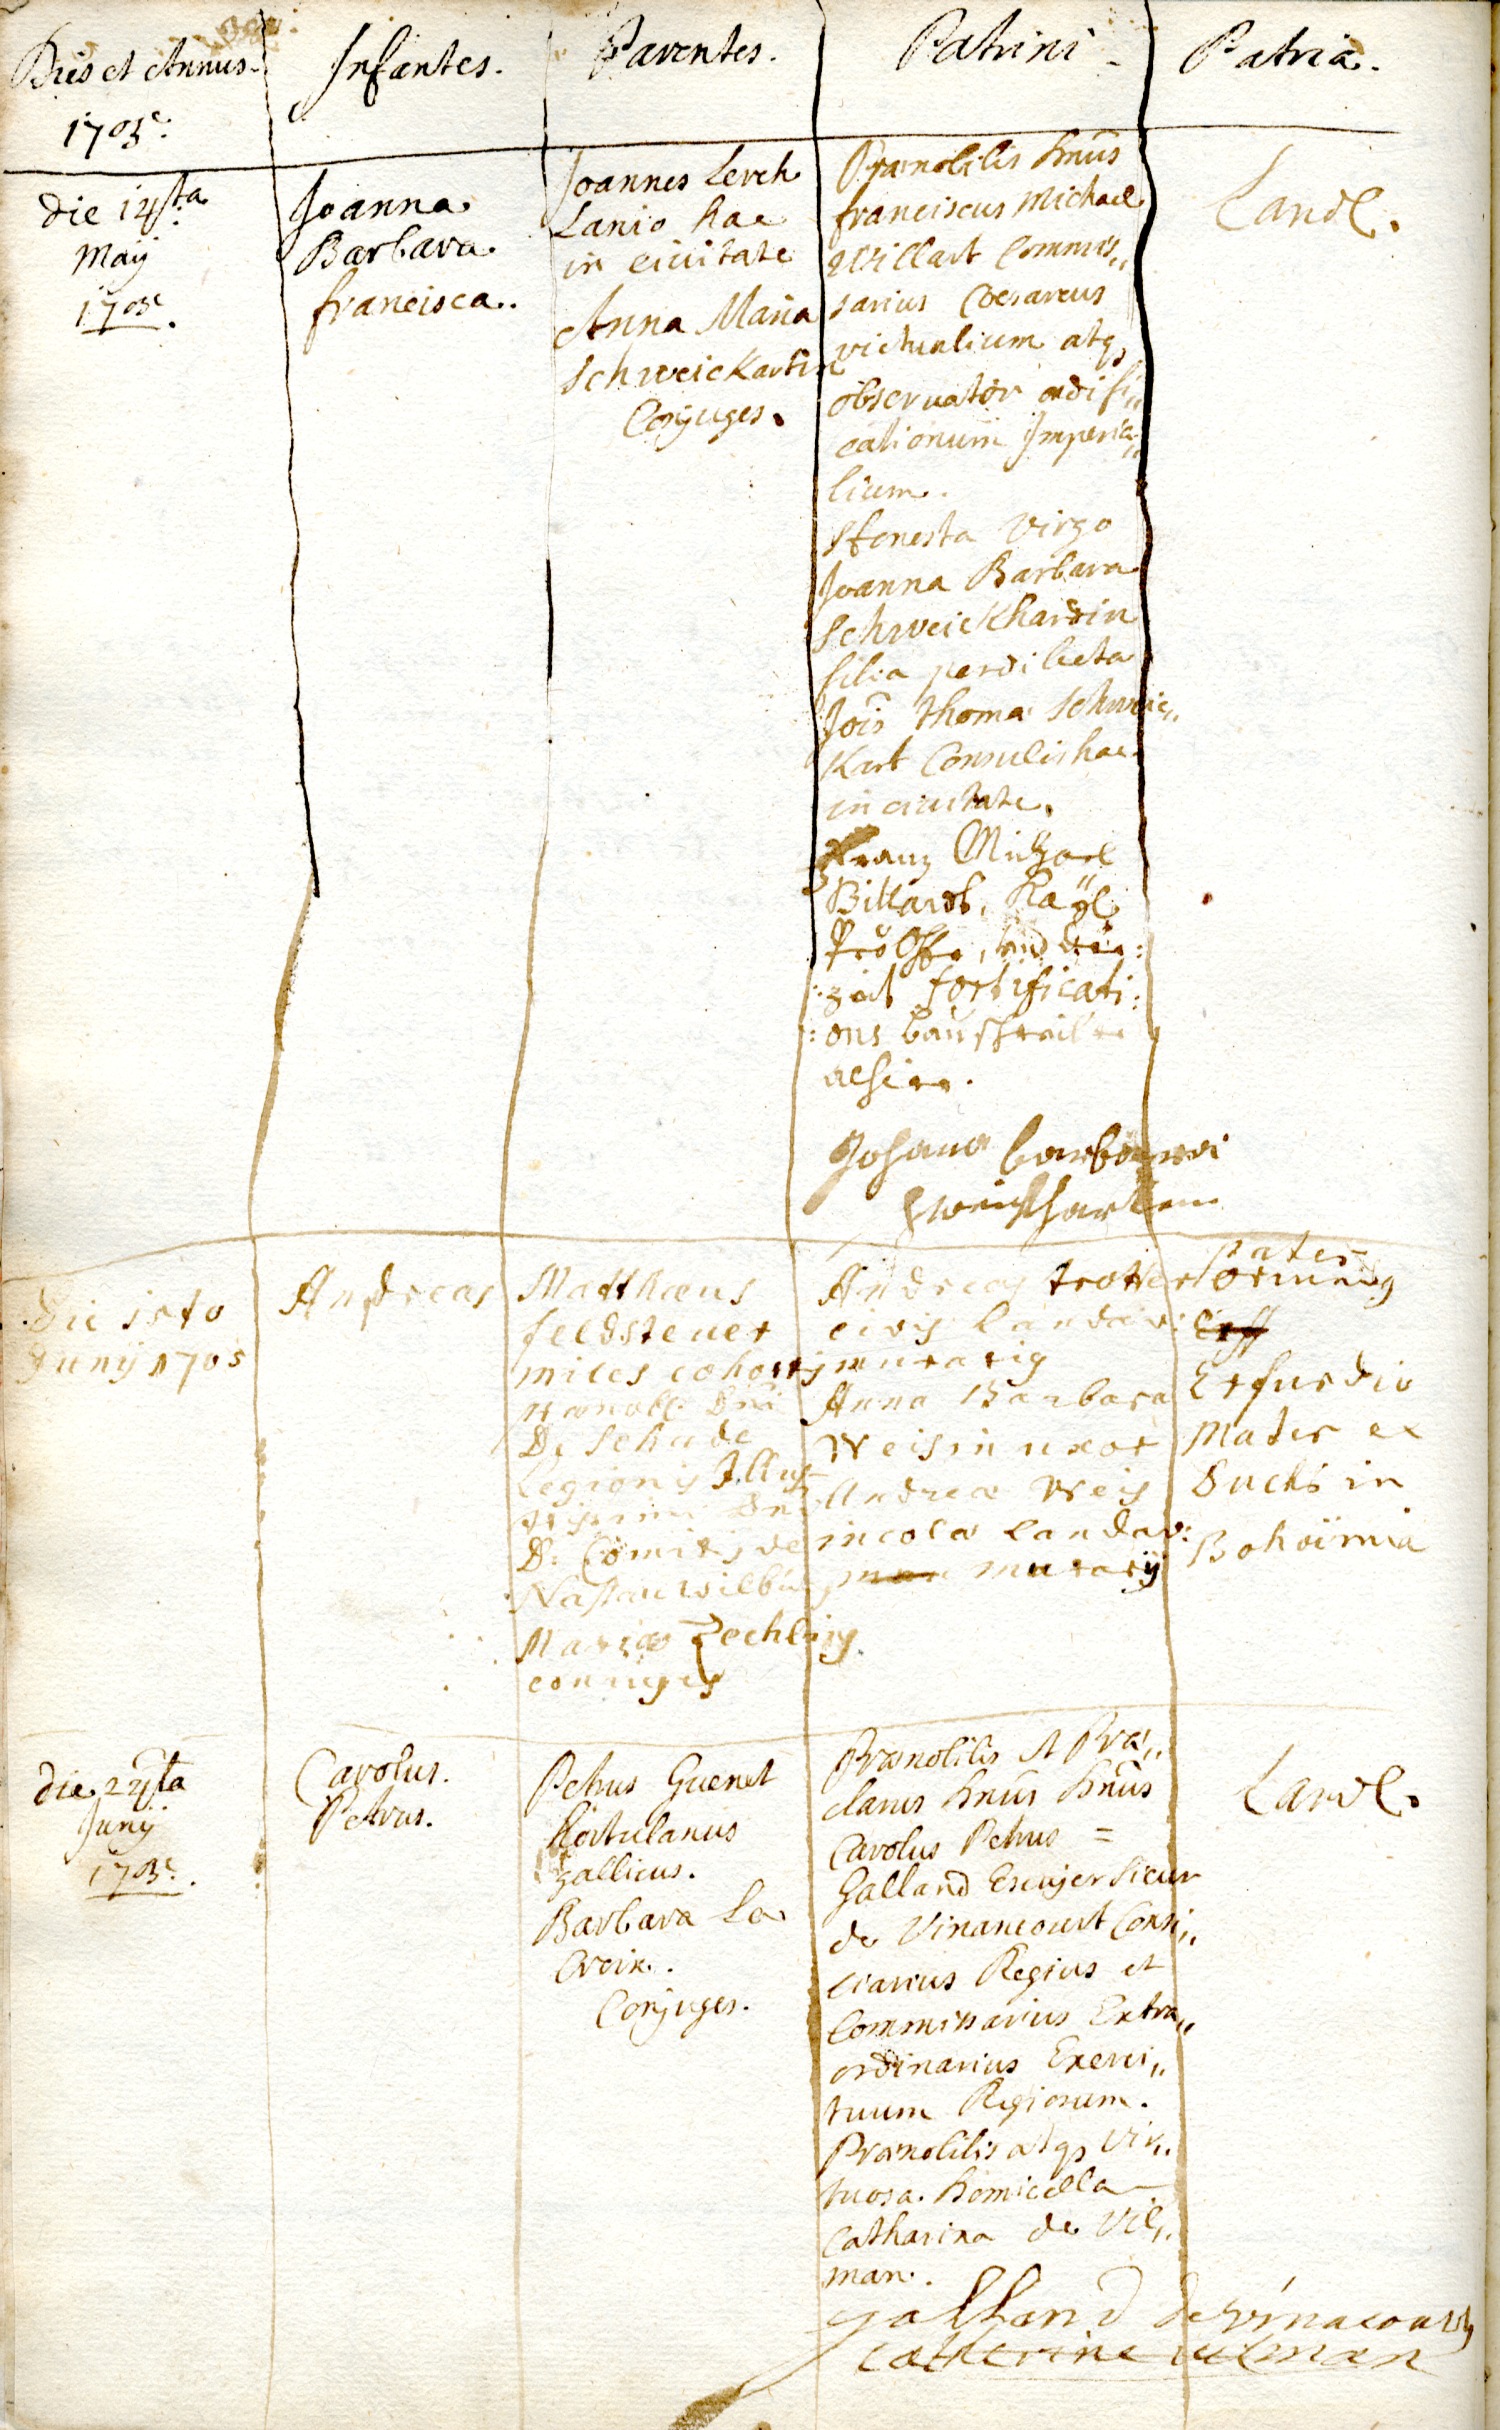 Dies et Annus.
1705.
Infantes.
Parentes.
Patrini
Patria.
die 14ta
Maÿ
1705.
Joanna
Barbara
francisca.
Joannes Lerch
Lanio hac
in civitate
Anna Maria
Schweickartin
Conjuges.
Prænobilis Dnus
franciscus Michael
Willart Commis„
sarius Cæsareus
victualium atq3
observator ædifi„
cationum Imperia„
lium.
Honesta Virgo
Joanna Barbara
Schweickhardin
filia perdilecta
Jois Thomæ Schweic„
Kart Consulis hac
in civitate.
Franz Michael
Billardt, Kaÿl.
und
zeit fortificati:
:ons bau
alhier.
Johana barbara
Landt.
die 1sto
Junÿ 1705
Andreas
Matthæus
feldsteuer
miles cohortis
prænob: Dni
De Schude
Legionis Illus
trissimi Dni
D: Comitis de
Nassau wilbūrg
Mariæ Zechlin
coniuges
Andreas trotter
civis Landav:
murarig
Anna Barbara
Weisin uxor
Andreæ Weis
incolæ Landav:
murarÿ
pater
oriundg
Erff
Erfurdio
Mater ex
Duchs in
Bohoimia
die 24ta
Junÿ
1705.
Carolus.
Petrus.
Petrus Guenet
hortulanus
gallicus.
Barbara La
Croix.
Conjuges.
Prænobilis et Præ„
clarus Dnus Dnus
Carolus Petrus =
Galland Escujer Sieur
de Vinancourt Consi„
liarius Regius et
Commissarius Extra„
ordinarius Exerci„
tuum Regiorum.
Prænobilis atq3 Vir„
tuosa Domicella
Catharina de Vil„
man.
galland de vinacourt
catherine vilman
Landt.